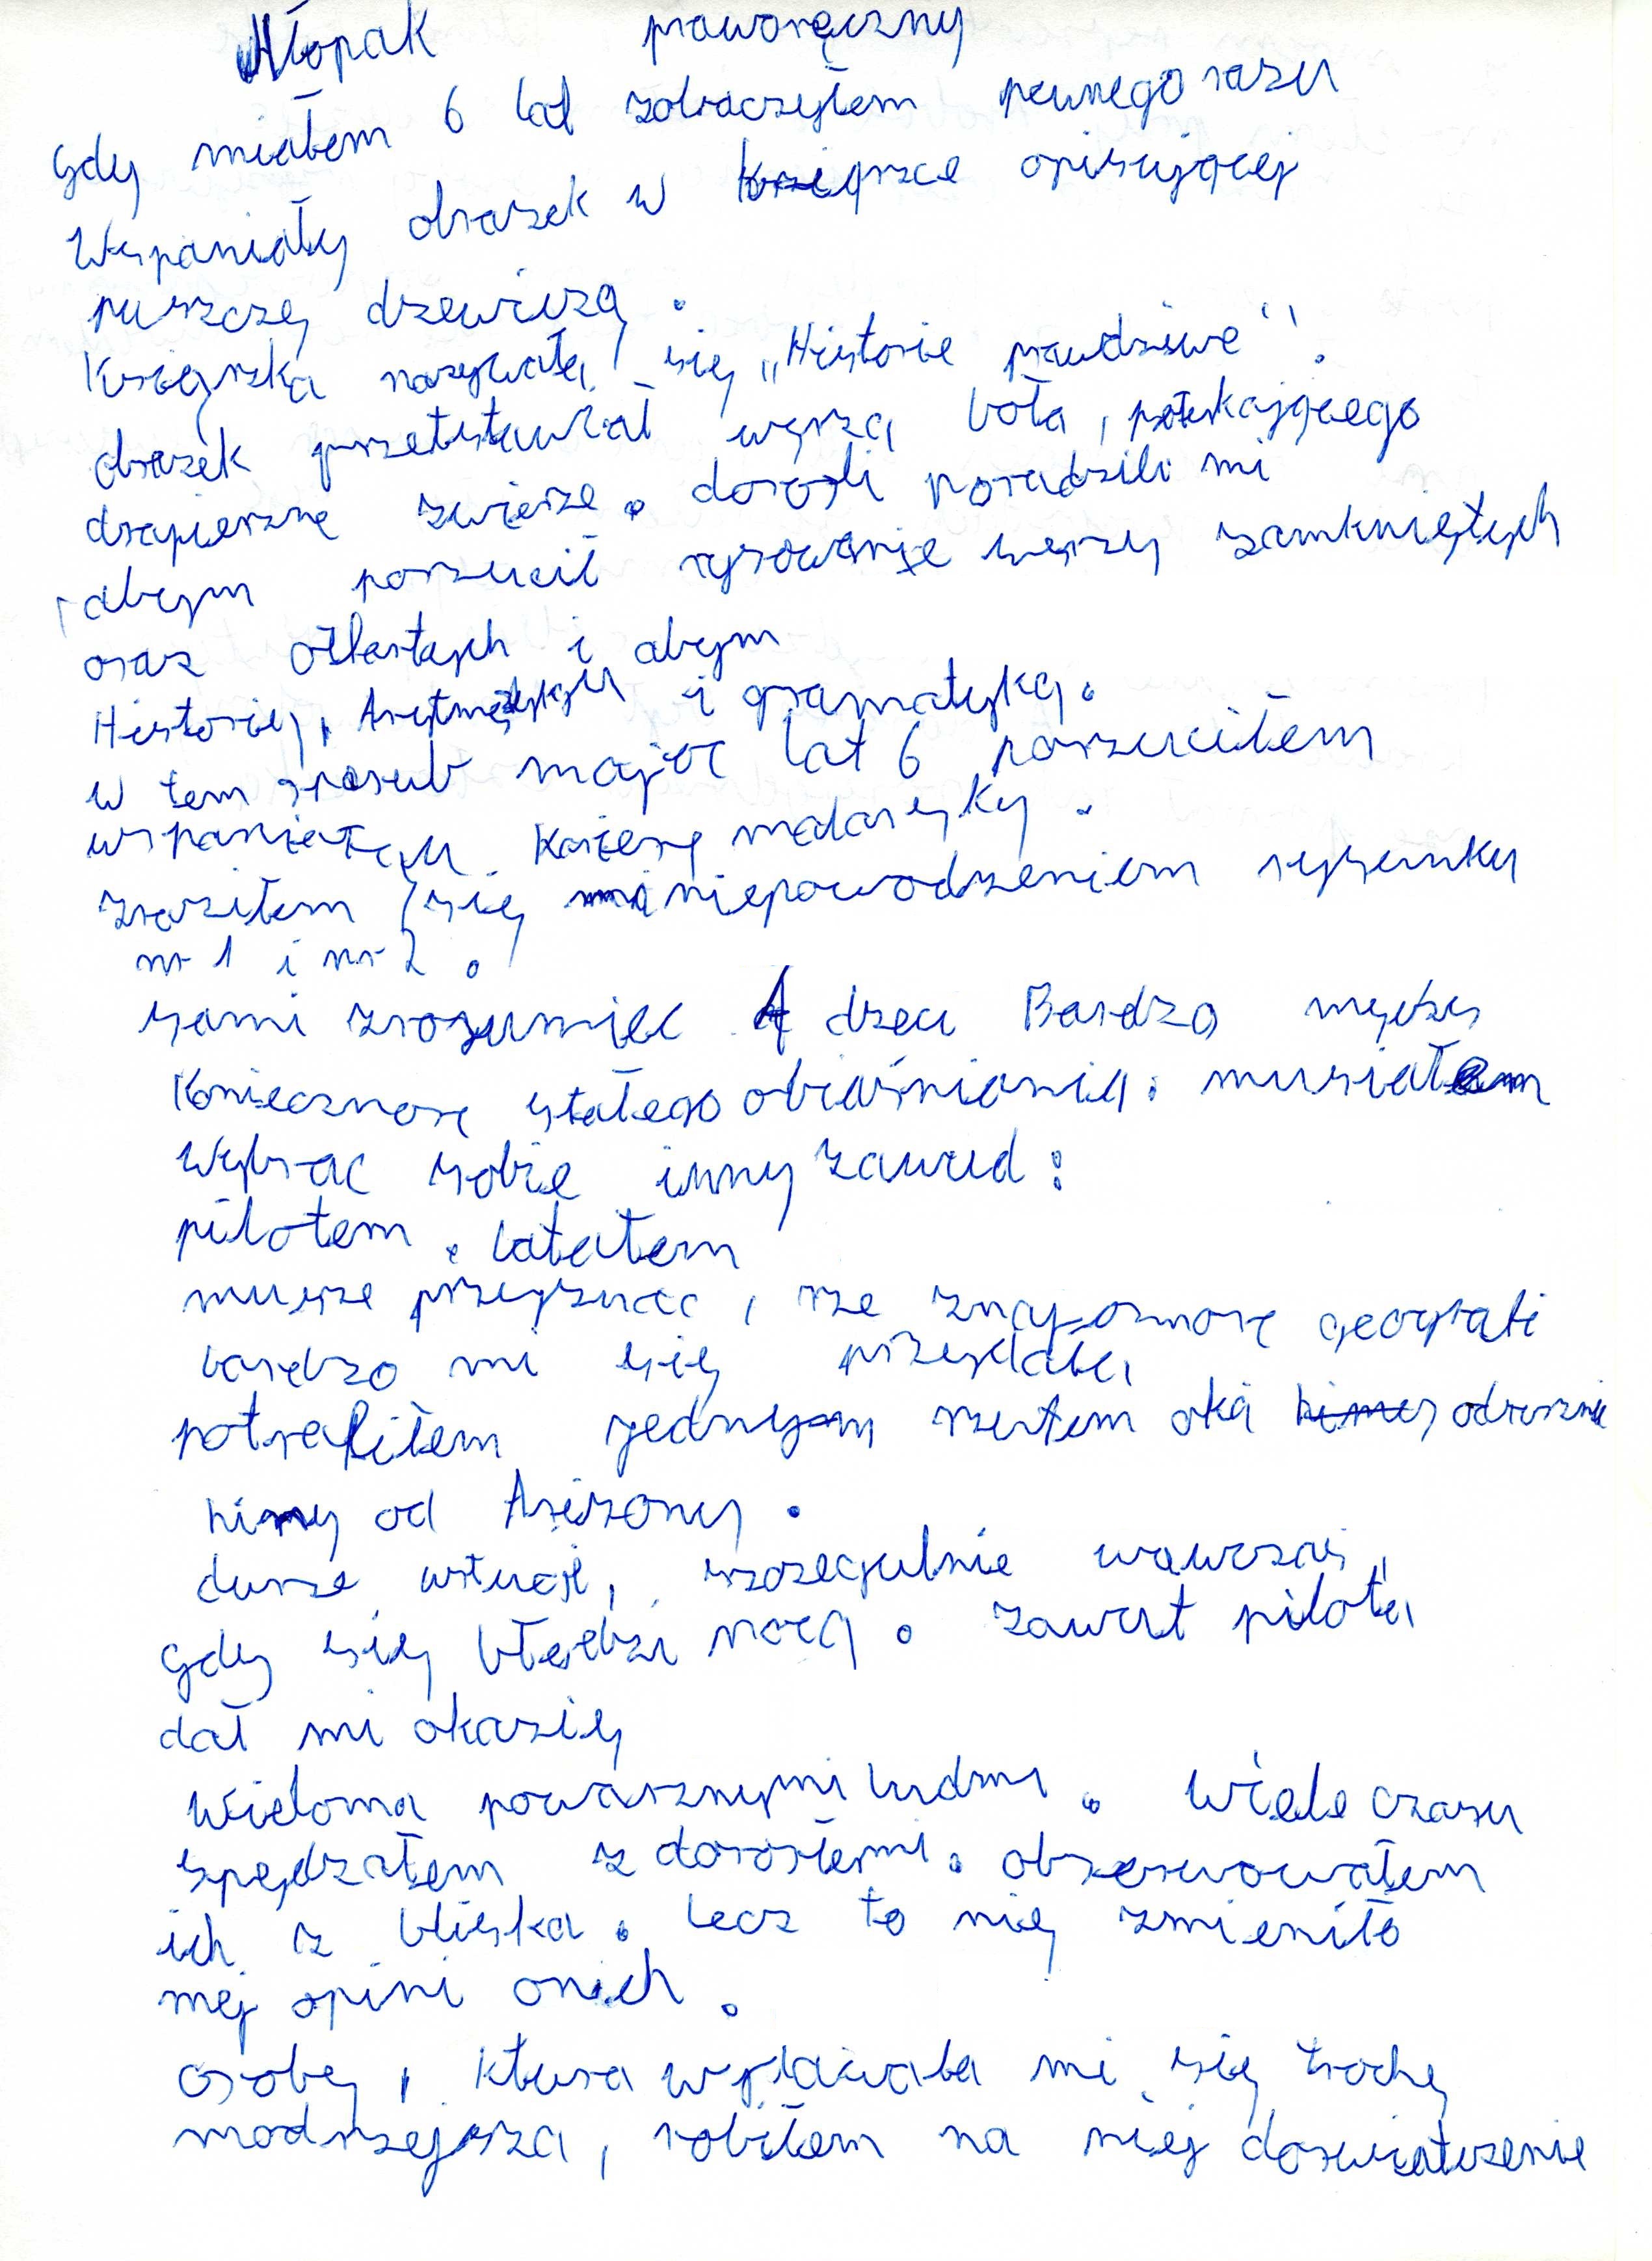 Hłopak praworęczny
gdy miałem 6 lat zobaczyłem pewnego razu
Wspaniały obrazek w ksiąrzce opisującej
puszczę dzewiczą.
Książrka nazywała się „Historie prawdziwe".
obrazek przetstawiał węrza boła, połukającego
drapierzne zwierze. dorośli poradzili mi
abym porzucił rysowanie węrzy zamkniętych
oraz otfartych i abym
Historię, Arytmetykę i gramatyką.
W tem sposub mając lat 6 porzuciłem
wspaniałą karierę malarsyky.
zraziłem się niepowodzeniem rysunku
nr 1 i nr 2.
sami zrozumieć A dzeci Bardzo męczy
Koniecznosc stałego obiaśniania. musiałem
Wybrac sobie inny zawud:
pilotem. latałem
musze przyznac, rze znajomosc geografi
bardzo mi się przydała
potrafiłem jednym rzutem oka hiny odruznic
hiny od Arizony.
durze usługi, szczegulnie wuwczas,
gdy się błędzi nocą. zawut pilota
dał mi okazię
Wieloma powarznymi ludzmi. Wiele czasu
spędzałem z dorosłemi. obserwowałem
ich z bliska. lecz to nię zmieniło
mej opini onich.
osobę, ktura wydawała mi się trochę
modrzejsza, robiłem na niej doswiatczenie